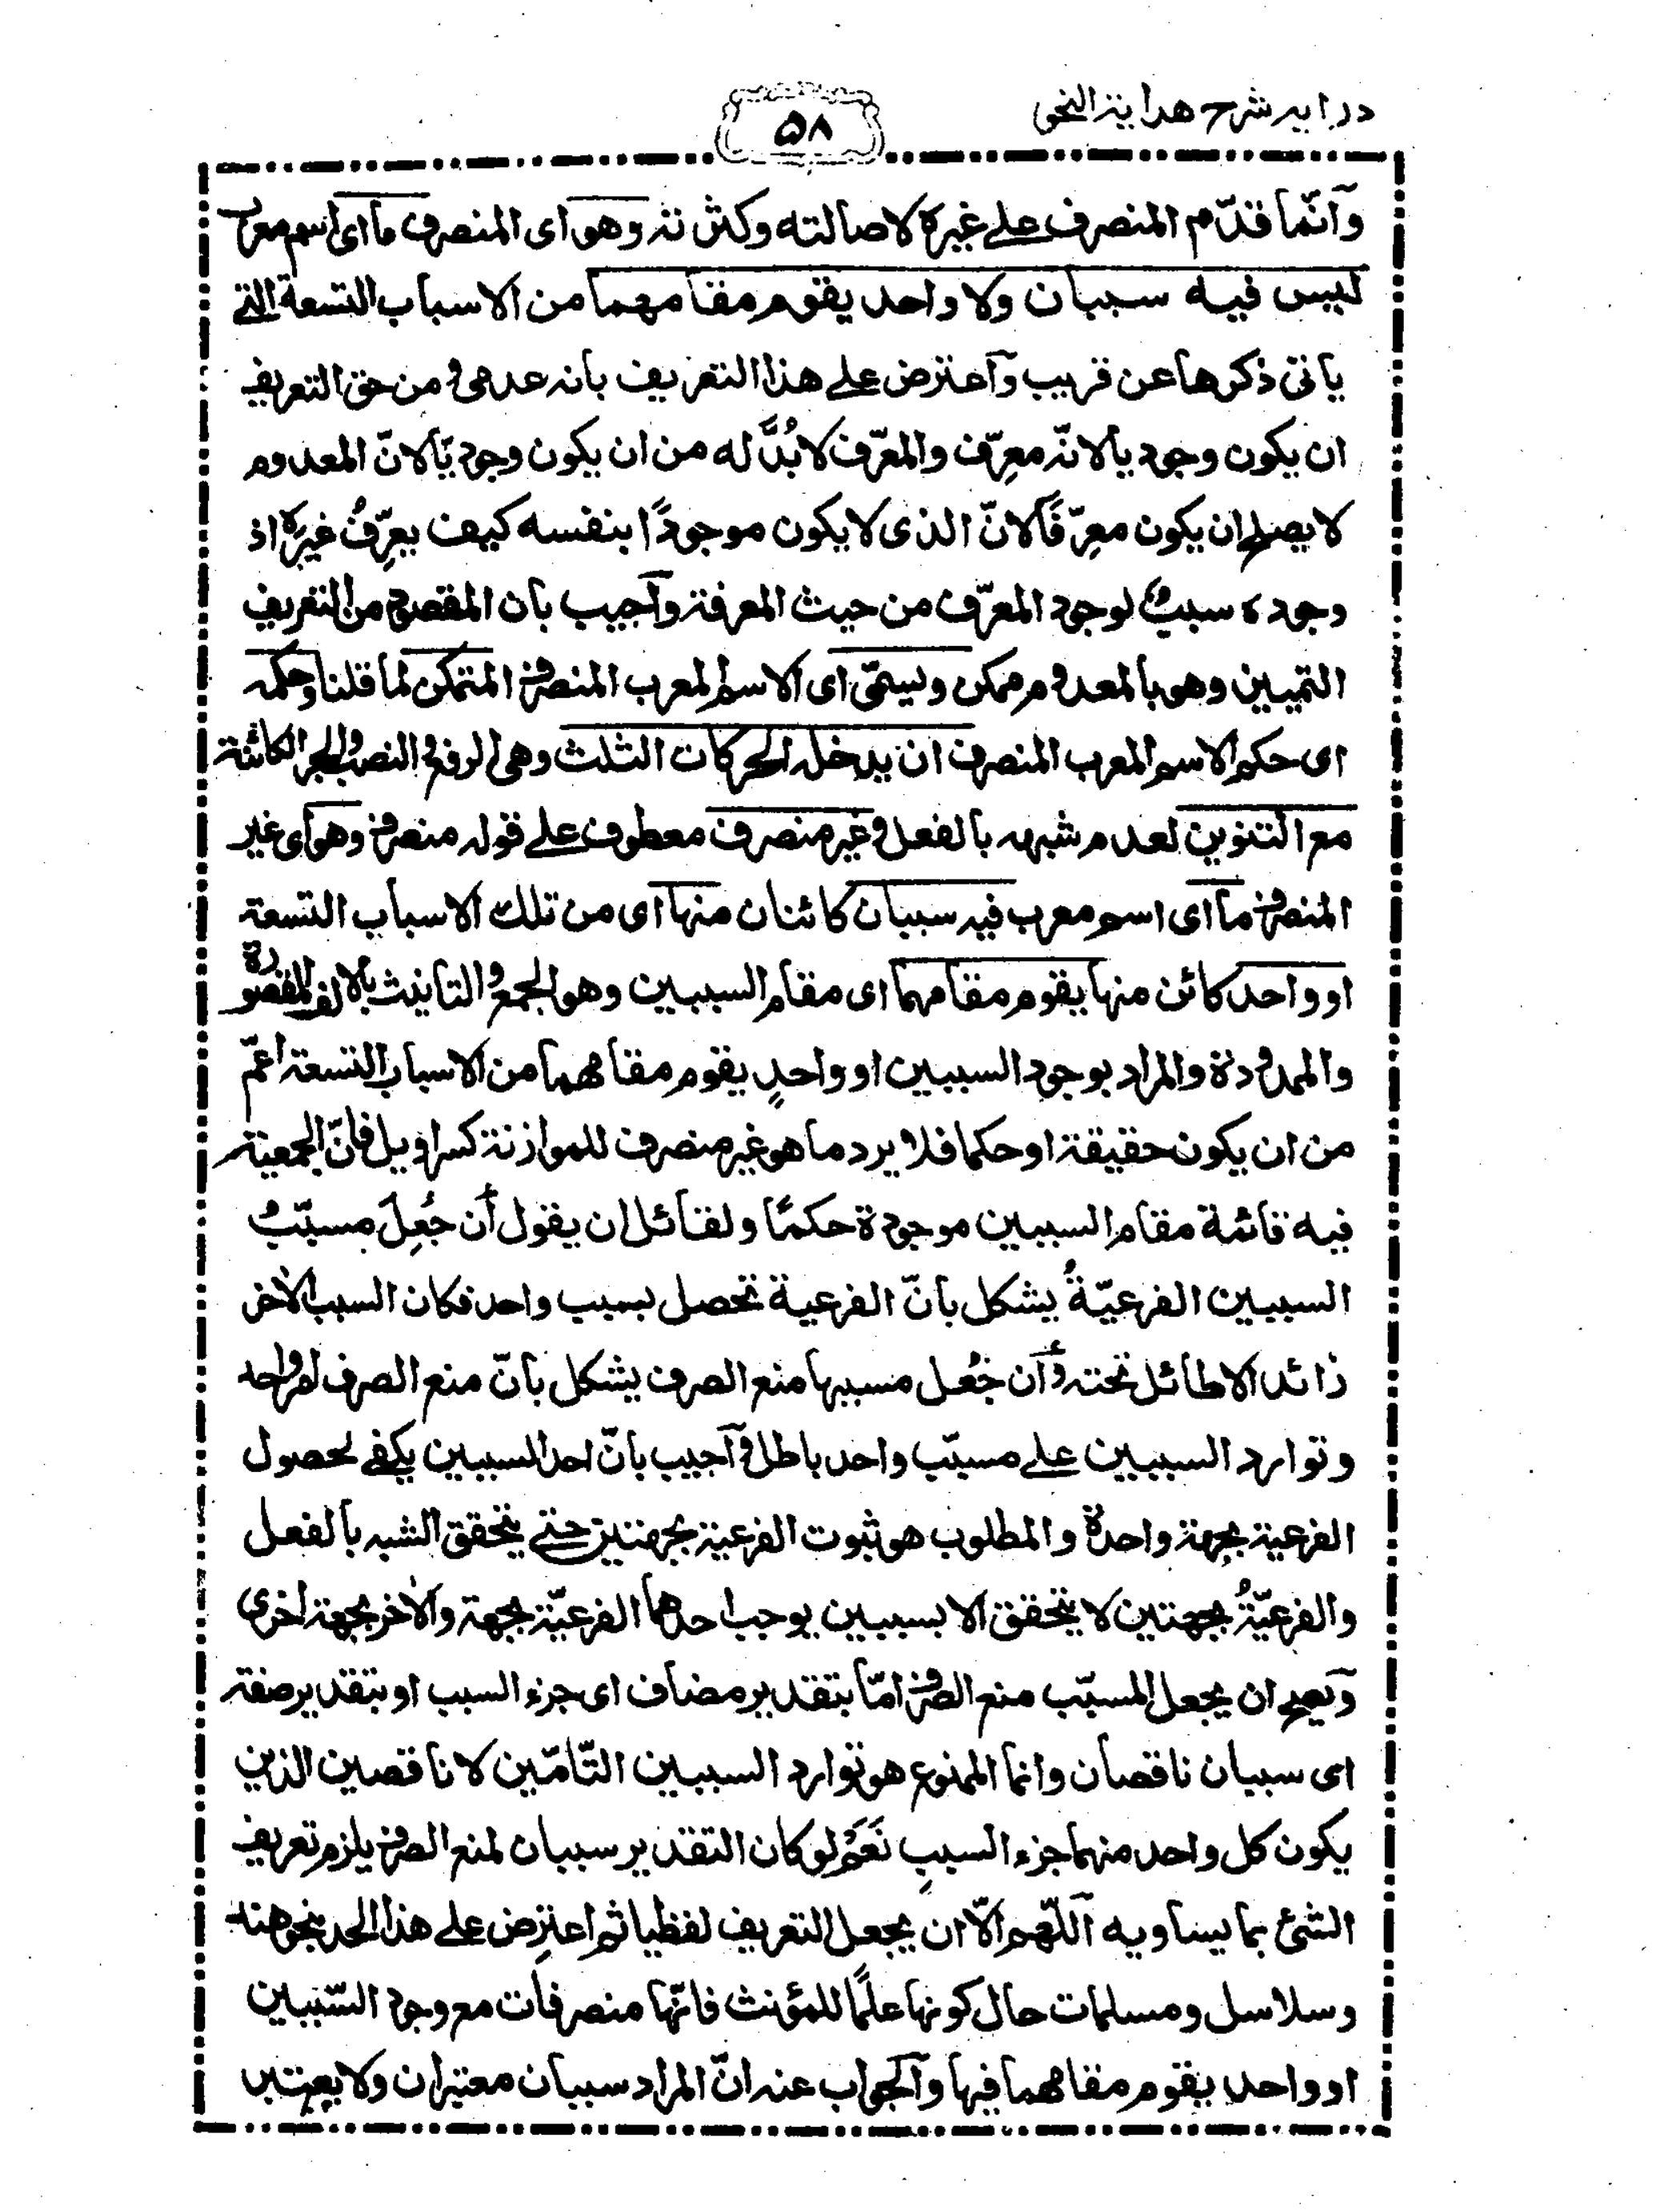 درايه شرح هداية النحو
۵۸
وانّما قدّم المنصرف على غيره لاصالته وكثرته وهو اى المنصرف ما اى اسم معرب
ليس فيه سببان ولا واحد يقوم مقامهما من الاسباب التسعة التى
ياتى ذكرها عن قريب وآعترض على هذا التعريف بانه عدمى و من حق التعريف
ان يكون وجوديا لانّه معرِّف والمعرّف لا بُدَّ له من ان يكون وجوديّا لانّ المعدوم
لا يصلح ان يكون معرِّفًا لانّ الذى لا يكون موجودًا بنفسه كيف يعرِّفُ غيره اذ
وجوده سببٌ لوجود المعرّف من حيث المعرفة وآجيب بان المقصود من التعريف
التميين وهو بالمعدوم ممكن ويسمّى اى الاسم المعرب المنصرف المتمكن لما قلنا وحكمه
اى حكم الاسم المعرب المنصرف ان يدخله الحركات الثلث وهى الرفع والنصب والجر الكائنة
مع التنوين لعدم شبهه بالفعل وغير منصرف معطوف على قوله منصرف وهو اى غير
المنصرف ما اى اسم معرب فيه سببان كائنان منها اى من تلك الاسباب التسعة
او واحد كائن منها يقوم مقامهما اى مقام السببين وهو الجمع والتانيث بالالف المقصورة
والممدودة والمراد بوجود السببين او واحدٍ يقوم مقامهما من الاسباب التسعة اعمّ
من ان يكون حقيقة او حكما فلا يرد ما هو غير منصرف للموازنة كسراويل فانّ الجمعية
فيه قائمة مقام السببين موجودة حكمًا ولقائل ان يقول أن جُعِلَ مسبّبُ
السببين الفرعيّةُ يشكل بانّ الفرعية تحصل بسبب واحد فكان السبب الاٰخر
زائد الاطائل تحته وأن جُعل مسببها منع الصرف يشكل بانّ منع الصرف امر واحد
وتوارد السببين على مسبّب واحد باطل وآجيب بانّ احد السببين يكفى لحصول
الفرعية بجهة واحدة والمطلوب هو ثبوت الفرعية بجهتين حتى يتحقق الشبه بالفعل
والفرعيّةُ بجهتين لا يتحقق الا بسببين يوجب احدهما الفرعيّة بجهة والاٰخر بجهة اخرى
وٓيصح ان يجعل المسبّب منع الصرف امّا بتقدير مضاف اى جزء السبب او بتقدير صفة
اى سببان ناقصان وانما الممنوع هو توارد السببين التّامّين لا ناقصين الذين
يكون كل واحد منهما جزء السببِ نَعَمْ لو كان التقدير سببان لمنع الصرف يلزم تعريف
الشئ بما يساويه اللّهم الّا ان يجعل التعريف لفظيا ثم اعترِض على هذا الحد بنحو هند
وسلاسل ومسلمات حال كونها علمًا للمؤنث فانّها منصرفات مع وجود السّببين
او واحد يقوم مقامهما فيها وآلجواب عنه انّ المراد سببان معتبران ولا يعتبر